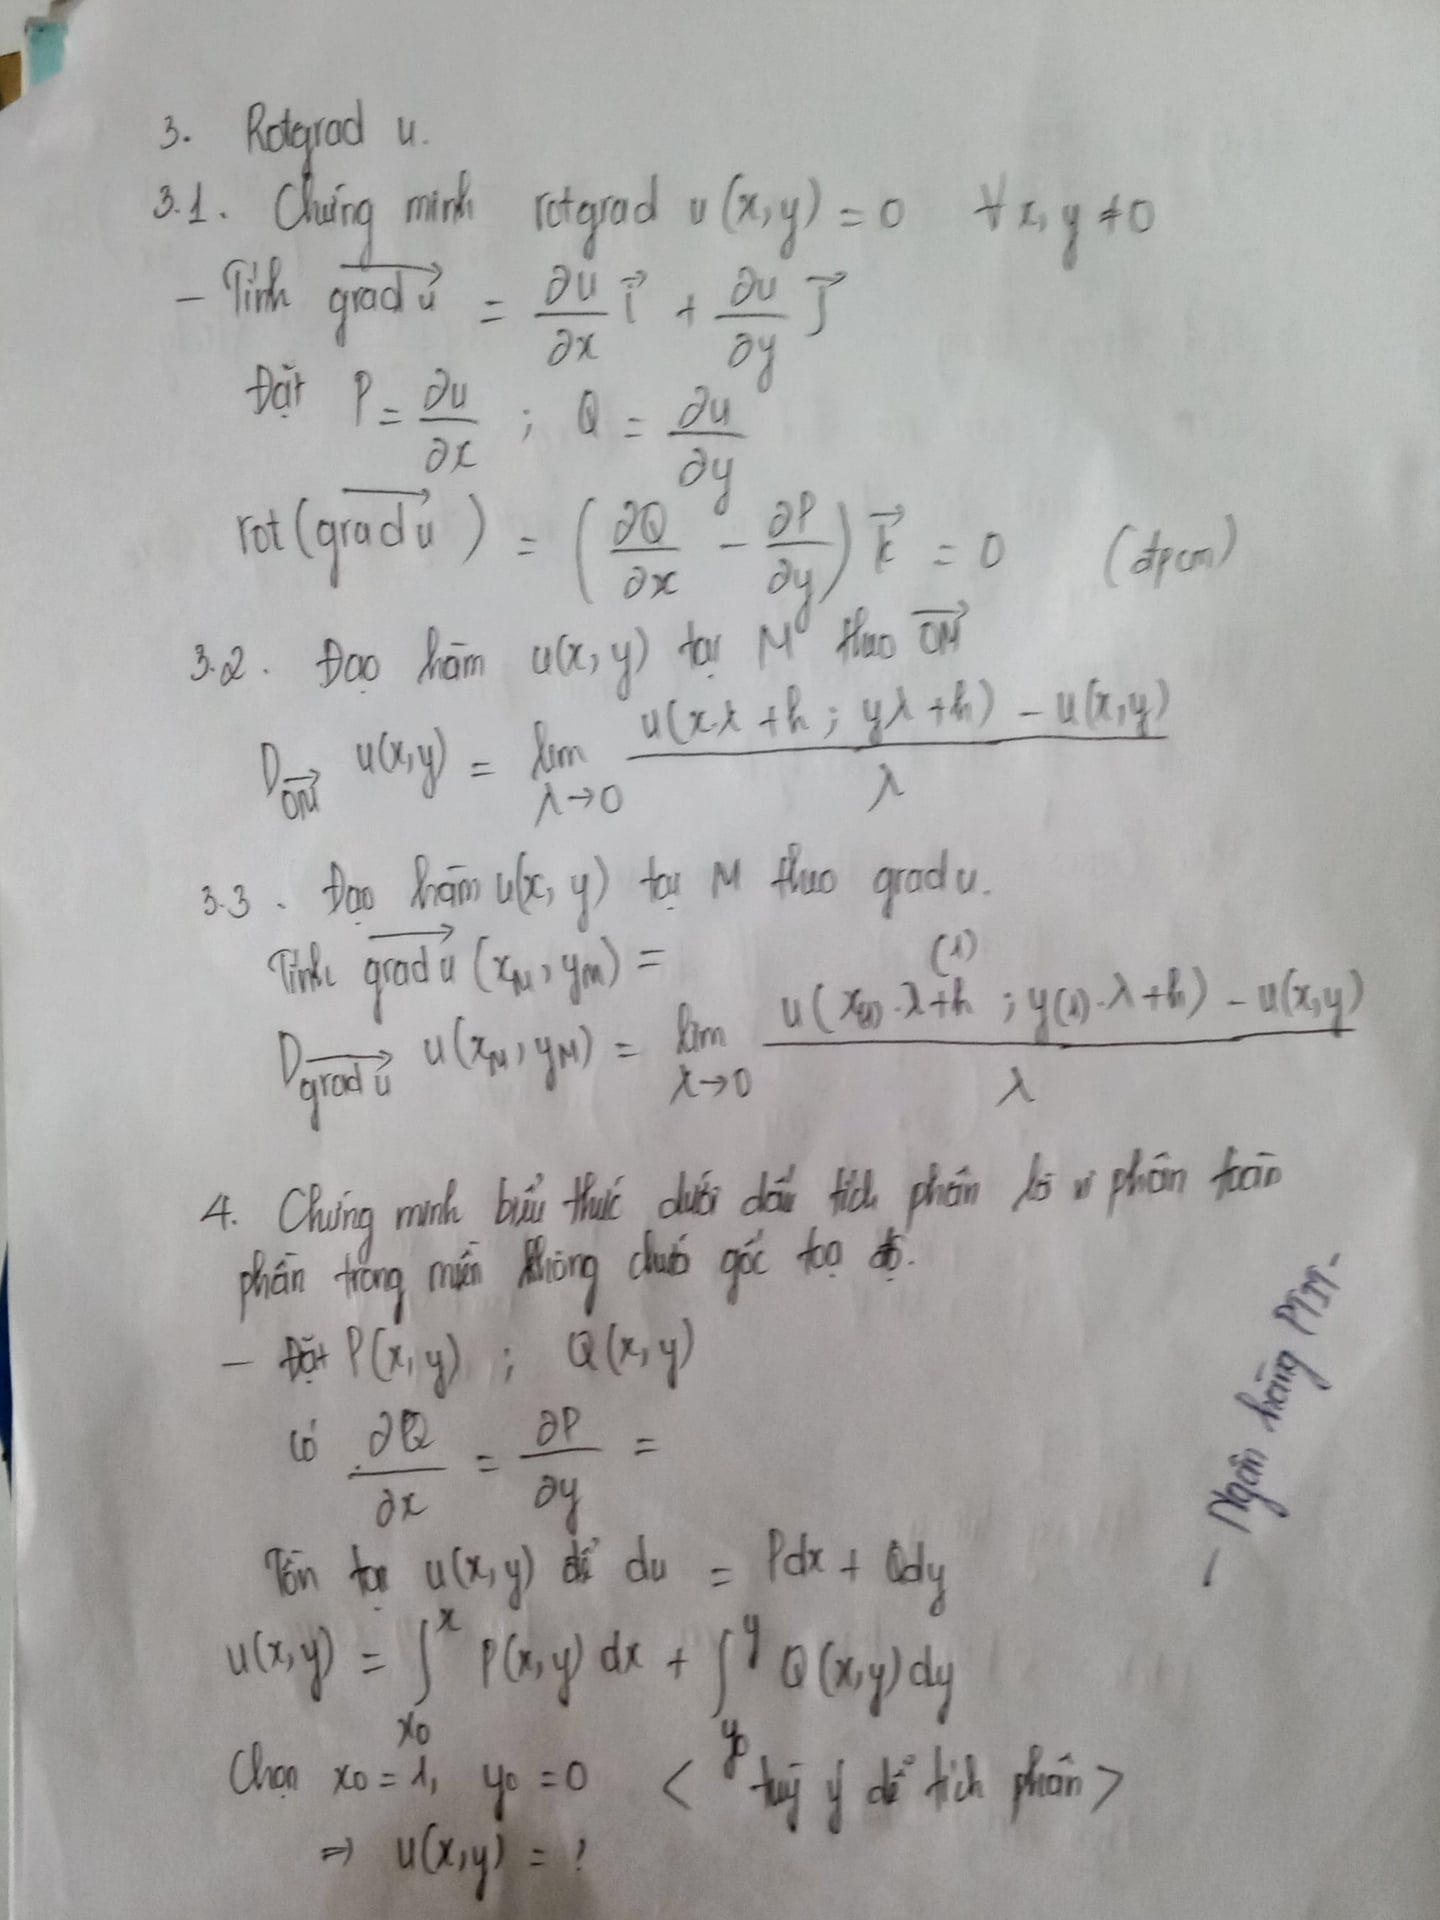 3. Rotgrad u.
3.1. Chứng minh rotgrad u(x,y) = 0 ∀x, y ≠ 0
- Tính \overrightarrow{grad u} = ∂u/∂x \vec{i} + ∂u/∂y \vec{j}
Đặt P = ∂u/∂x ; Q = ∂u/∂y
rot(\overrightarrow{grad u}) = (∂Q/∂x - ∂P/∂y) \vec{k} = 0 (đpcm)
3.2. Đạo hàm u(x,y) tại M theo \overrightarrow{OM}
D_{\overrightarrow{OM}} u(x,y) = lim_{λ→0} (u(x.λ + h ; yλ + h) - u(x,y))/λ
3.3. Đạo hàm u(x, y) tại M theo grad u.
Tính \overrightarrow{grad u} (x_M, y_M) = (1)
D_{\overrightarrow{grad u}} u(x_M, y_M) = lim_{λ→0} (u(x_{(1)}.λ+h ; y_{(1)}.λ+h) - u(x,y))/λ
4. Chứng minh biểu thức dưới dấu tích phân là vi phân toàn
phần trong miền không chứa gốc toạ độ.
- Đặt P(x, y) ; Q(x, y)
có ∂Q/∂x = ∂P/∂y =
Tồn tại u(x,y) để du = Pdx + Qdy
u(x,y) = ∫_{x_0}^{x} P(x,y) dx + ∫_{y_0}^{y} Q(x,y) dy
Chọn x_0 = 1, y_0 = 0 < tuỳ ý để tích phân >
⇒ u(x,y) = ?
- Ngân hàng PTIT -